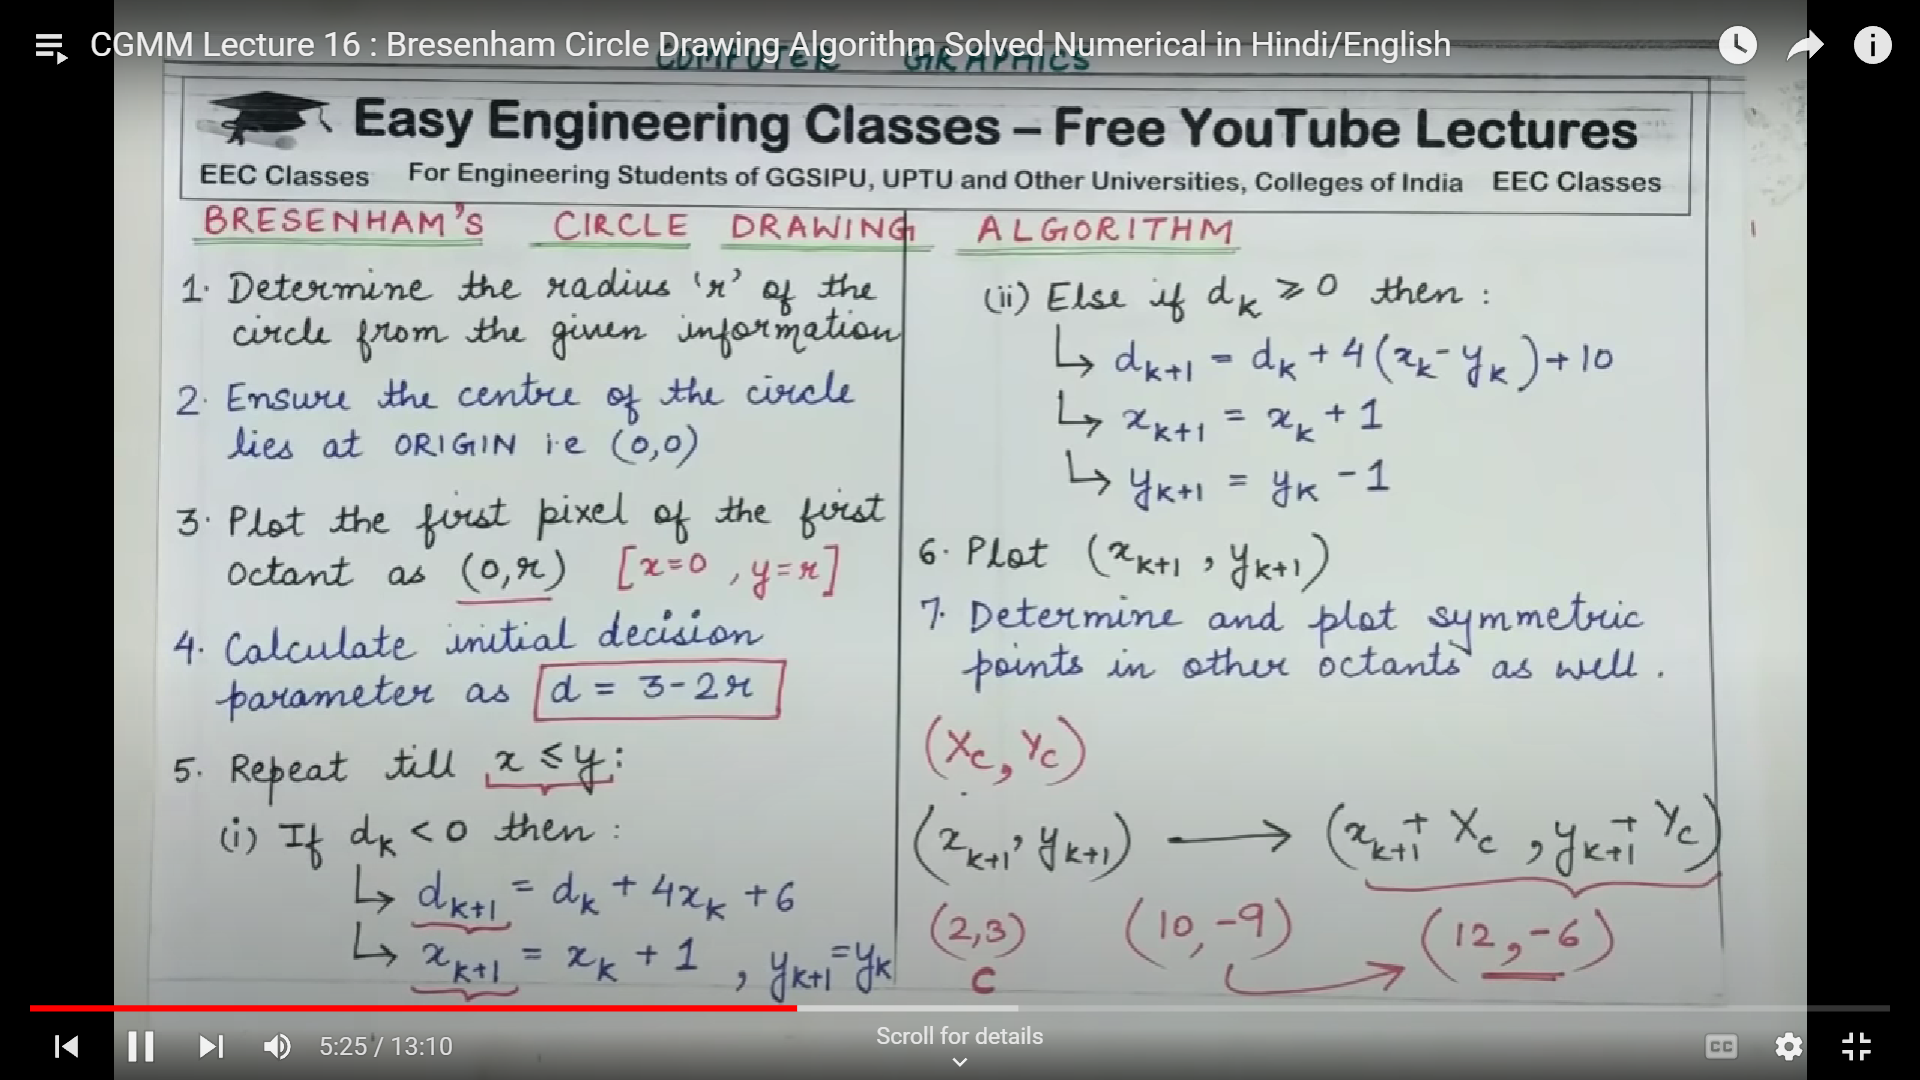 CGMM Lecture 16 : Bresenham Circle Drawing Algorithm Solved Numerical in Hindi/English
COMPUTER GRAPHICS
Easy Engineering Classes – Free YouTube Lectures
EEC Classes For Engineering Students of GGSIPU, UPTU and Other Universities, Colleges of India EEC Classes
BRESENHAM'S CIRCLE DRAWING ALGORITHM
1. Determine the radius 'r' of the
circle from the given information
2. Ensure the centre of the circle
lies at ORIGIN i.e (0,0)
3. Plot the first pixel of the first
octant as (0,r) [x=0 , y=r]
4. Calculate initial decision
parameter as d = 3-2r
5. Repeat till x ≤ y :
(i) If dₖ < 0 then :
↳ dₖ₊₁ = dₖ + 4xₖ + 6
↳ xₖ₊₁ = xₖ + 1 , yₖ₊₁ = yₖ
(ii) Else if dₖ ≥ 0 then :
↳ dₖ₊₁ = dₖ + 4(xₖ - yₖ) + 10
↳ xₖ₊₁ = xₖ + 1
↳ yₖ₊₁ = yₖ - 1
6. Plot (xₖ₊₁ , yₖ₊₁)
7. Determine and plot symmetric
points in other octants as well .
(Xc, Yc)
(xₖ₊₁, yₖ₊₁) → (xₖ₊₁ + Xc , yₖ₊₁ + Yc)
(2,3) (10,-9) (12,-6)
C
5:25 / 13:10
Scroll for details
CC